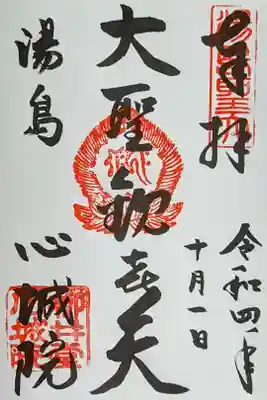 奉拝
令和四年
十月一日
大聖歓喜天
湯島
心城院